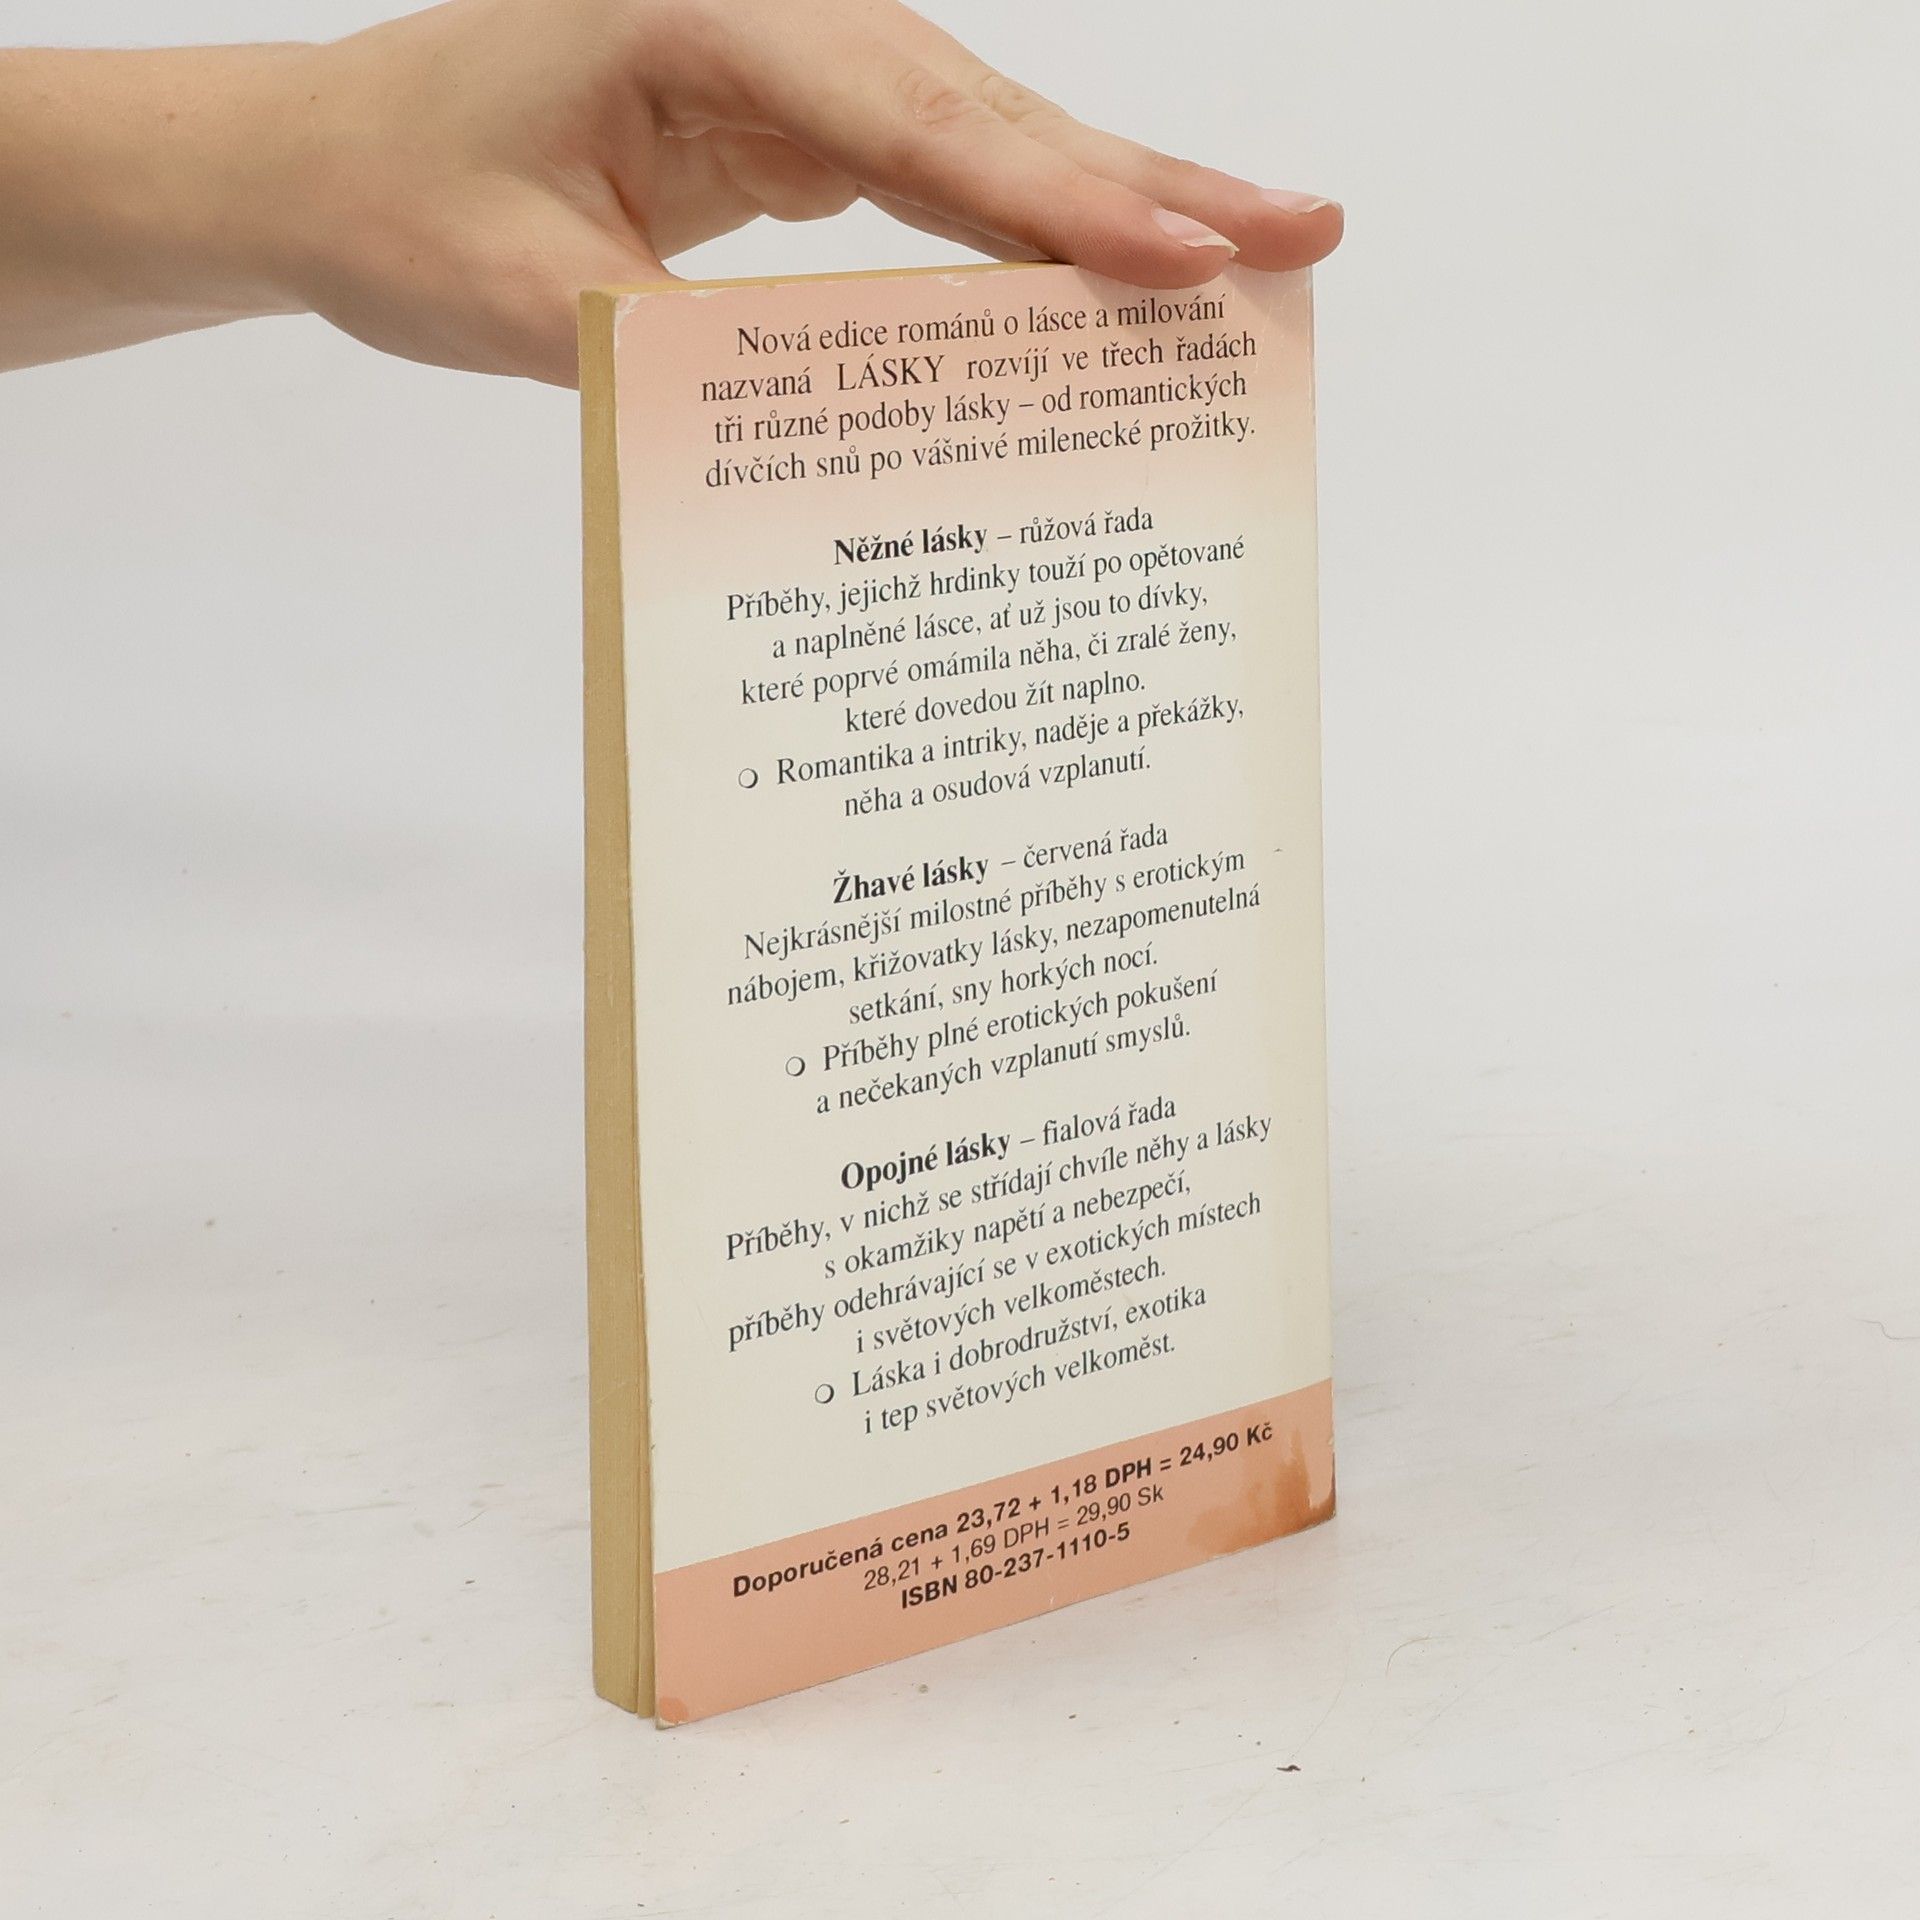 Nová edice románů o lásce a milování
nazvaná LÁSKY rozvíjí ve třech řadách
tři různé podoby lásky – od romantických
dívčích snů po vášnivé milenecké prožitky.
Něžné lásky – růžová řada
Příběhy, jejichž hrdinky touží po opětované
a naplněné lásce, ať už jsou to dívky,
které poprvé omámila něha, či zralé ženy,
které dovedou žít naplno.
❍ Romantika a intriky, naděje a překážky,
něha a osudová vzplanutí.
Žhavé lásky – červená řada
Nejkrásnější milostné příběhy s erotickým
nábojem, křižovatky lásky, nezapomenutelná
setkání, sny horkých nocí.
❍ Příběhy plné erotických pokušení
a nečekaných vzplanutí smyslů.
Opojné lásky – fialová řada
Příběhy, v nichž se střídají chvíle něhy a lásky
s okamžiky napětí a nebezpečí,
příběhy odehrávající se v exotických místech
i světových velkoměstech.
❍ Láska i dobrodružství, exotika
i tep světových velkoměst.
Doporučená cena 23,72 + 1,18 DPH = 24,90 Kč
28,21 + 1,69 DPH = 29,90 Sk
ISBN 80-237-1110-5